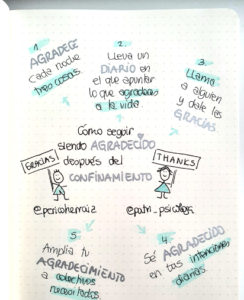 1.
AGRADECE
cada noche
tres cosas.
2.
Lleva un
DIARIO en
el que apuntar
lo que agradeces
a la vida.
3.
Llama
a alguien
y dale las
GRACIAS
Cómo seguir
siendo AGRADECIDO
después del
CONFINAMIENTO
GRACIAS
THANKS
@pericoherraiz
@patri_psicologa
5.
Amplía tu
AGRADECIMIENTO
a colectivos
necesitados.
4.
Sé AGRADECIDO
en tus interacciones
diarias.